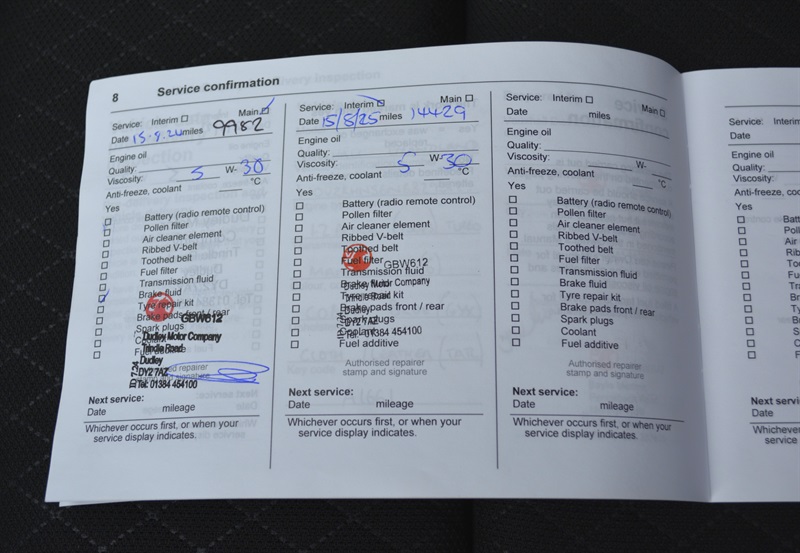 8 Service confirmation
Service: Interim ☐ Main ☑
Date 15.8.24 miles 9982
Engine oil
Quality:
Viscosity: 5 W- 30
Anti-freeze, coolant °C
Yes
☐ Battery (radio remote control)
☐ Pollen filter
☐ Air cleaner element
☐ Ribbed V-belt
☐ Toothed belt
☐ Fuel filter
☐ Transmission fluid
☑ Brake fluid
☐ Tyre repair kit
☐ Brake pads front / rear
☐ Spark plugs
☐ Coolant
☐ Fuel additive
GBW612
Dudley Motor Company
Trindle Road
Dudley
DY2 7AZ
Tel: 01384 454100
Next service:
Date mileage
Whichever occurs first, or when your
service display indicates.
Service: Interim ☑ Main ☐
Date 15/8/25 miles 14429
Engine oil
Quality:
Viscosity: 5 W- 30
Anti-freeze, coolant °C
Yes
☐ Battery (radio remote control)
☐ Pollen filter
☐ Air cleaner element
☐ Ribbed V-belt
☐ Toothed belt
☐ Fuel filter
☐ Transmission fluid
☐ Brake fluid
☐ Tyre repair kit
☐ Brake pads front / rear
☐ Spark plugs
☐ Coolant
☐ Fuel additive
GBW612
Dudley Motor Company
Trindle Road
Dudley
DY2 7AZ
Tel: 01384 454100
Authorised repairer
stamp and signature
Next service:
Date mileage
Whichever occurs first, or when your
service display indicates.
Service: Interim ☐ Main ☐
Date miles
Engine oil
Quality:
Viscosity: W-
Anti-freeze, coolant °C
Yes
☐ Battery (radio remote control)
☐ Pollen filter
☐ Air cleaner element
☐ Ribbed V-belt
☐ Toothed belt
☐ Fuel filter
☐ Transmission fluid
☐ Brake fluid
☐ Tyre repair kit
☐ Brake pads front / rear
☐ Spark plugs
☐ Coolant
☐ Fuel additive
Authorised repairer
stamp and signature
Next service:
Date mileage
Whichever occurs first, or when your
service display indicates.
Service: Interim
Date
Engine oil
Quality:
Viscosity:
Anti-freeze, coo
Yes